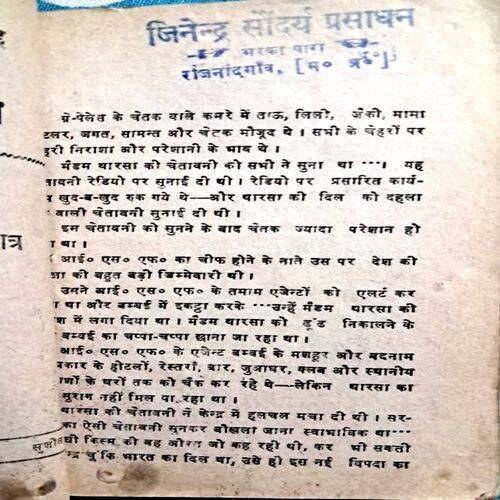 जिनेन्द्र सौंदर्य प्रसाधन
भरका पारा
राजनांदगाँव, [म० प्र०]
ग्रे-पैलेस के चेतक वाले कमरे में ताऊ, लिली, जैकी, मामा
टलर, जगत, सामन्त और चेटक मौजूद थे । सभी के चेहरों पर
हरी निराशा और परेशानी के भाव थे ।
मैडम थारसा की चेतावनी को सभी ने सुना था ···। यह
तावनी रेडियो पर सुनाई दी थी । रेडियो पर प्रसारित कार्य-
खुद-ब-खुद रुक गये थे—और थारसा की दिल को दहला
वाली चेतावनी सुनाई दी थी ।
इस चेतावनी को सुनने के बाद चेतक ज्यादा परेशान हो
था ।
आई० एस० एफ० का चीफ होने के नाते उस पर देश की
की बहुत बड़ी जिम्मेवारी थी ।
उसने आई० एस० एफ० के तमाम एजेन्टों को एलर्ट कर
था और बम्बई में इकट्ठा करके ···उन्हें मैडम थारसा की
श में लगा दिया था । मैडम थारसा को ढूंढ निकालने के
बम्बई का चप्पा-चप्पा छाना जा रहा था ।
आई० एस० एफ० के एजेन्ट बम्बई के मशहूर और बदनाम
प्रकार के होटलों, रेस्तरां, बार, जुआघर, क्लब और स्थानीय
शों के घरों तक को चैक कर रहे थे—लेकिन थारसा का
सुराग नहीं मिल पा रहा था ।
थारसा की चेतावनी ने केन्द्र में हलचल मचा दी थी । सर-
का ऐसी चेतावनी सुनकर बौखला जाना स्वाभाविक था···
किस्म की वह औरत जो कह रही थी, कर भी सकती
न्द्र चूंकि भारत का दिल था, उसे ही इस नई विपदा का
त्र